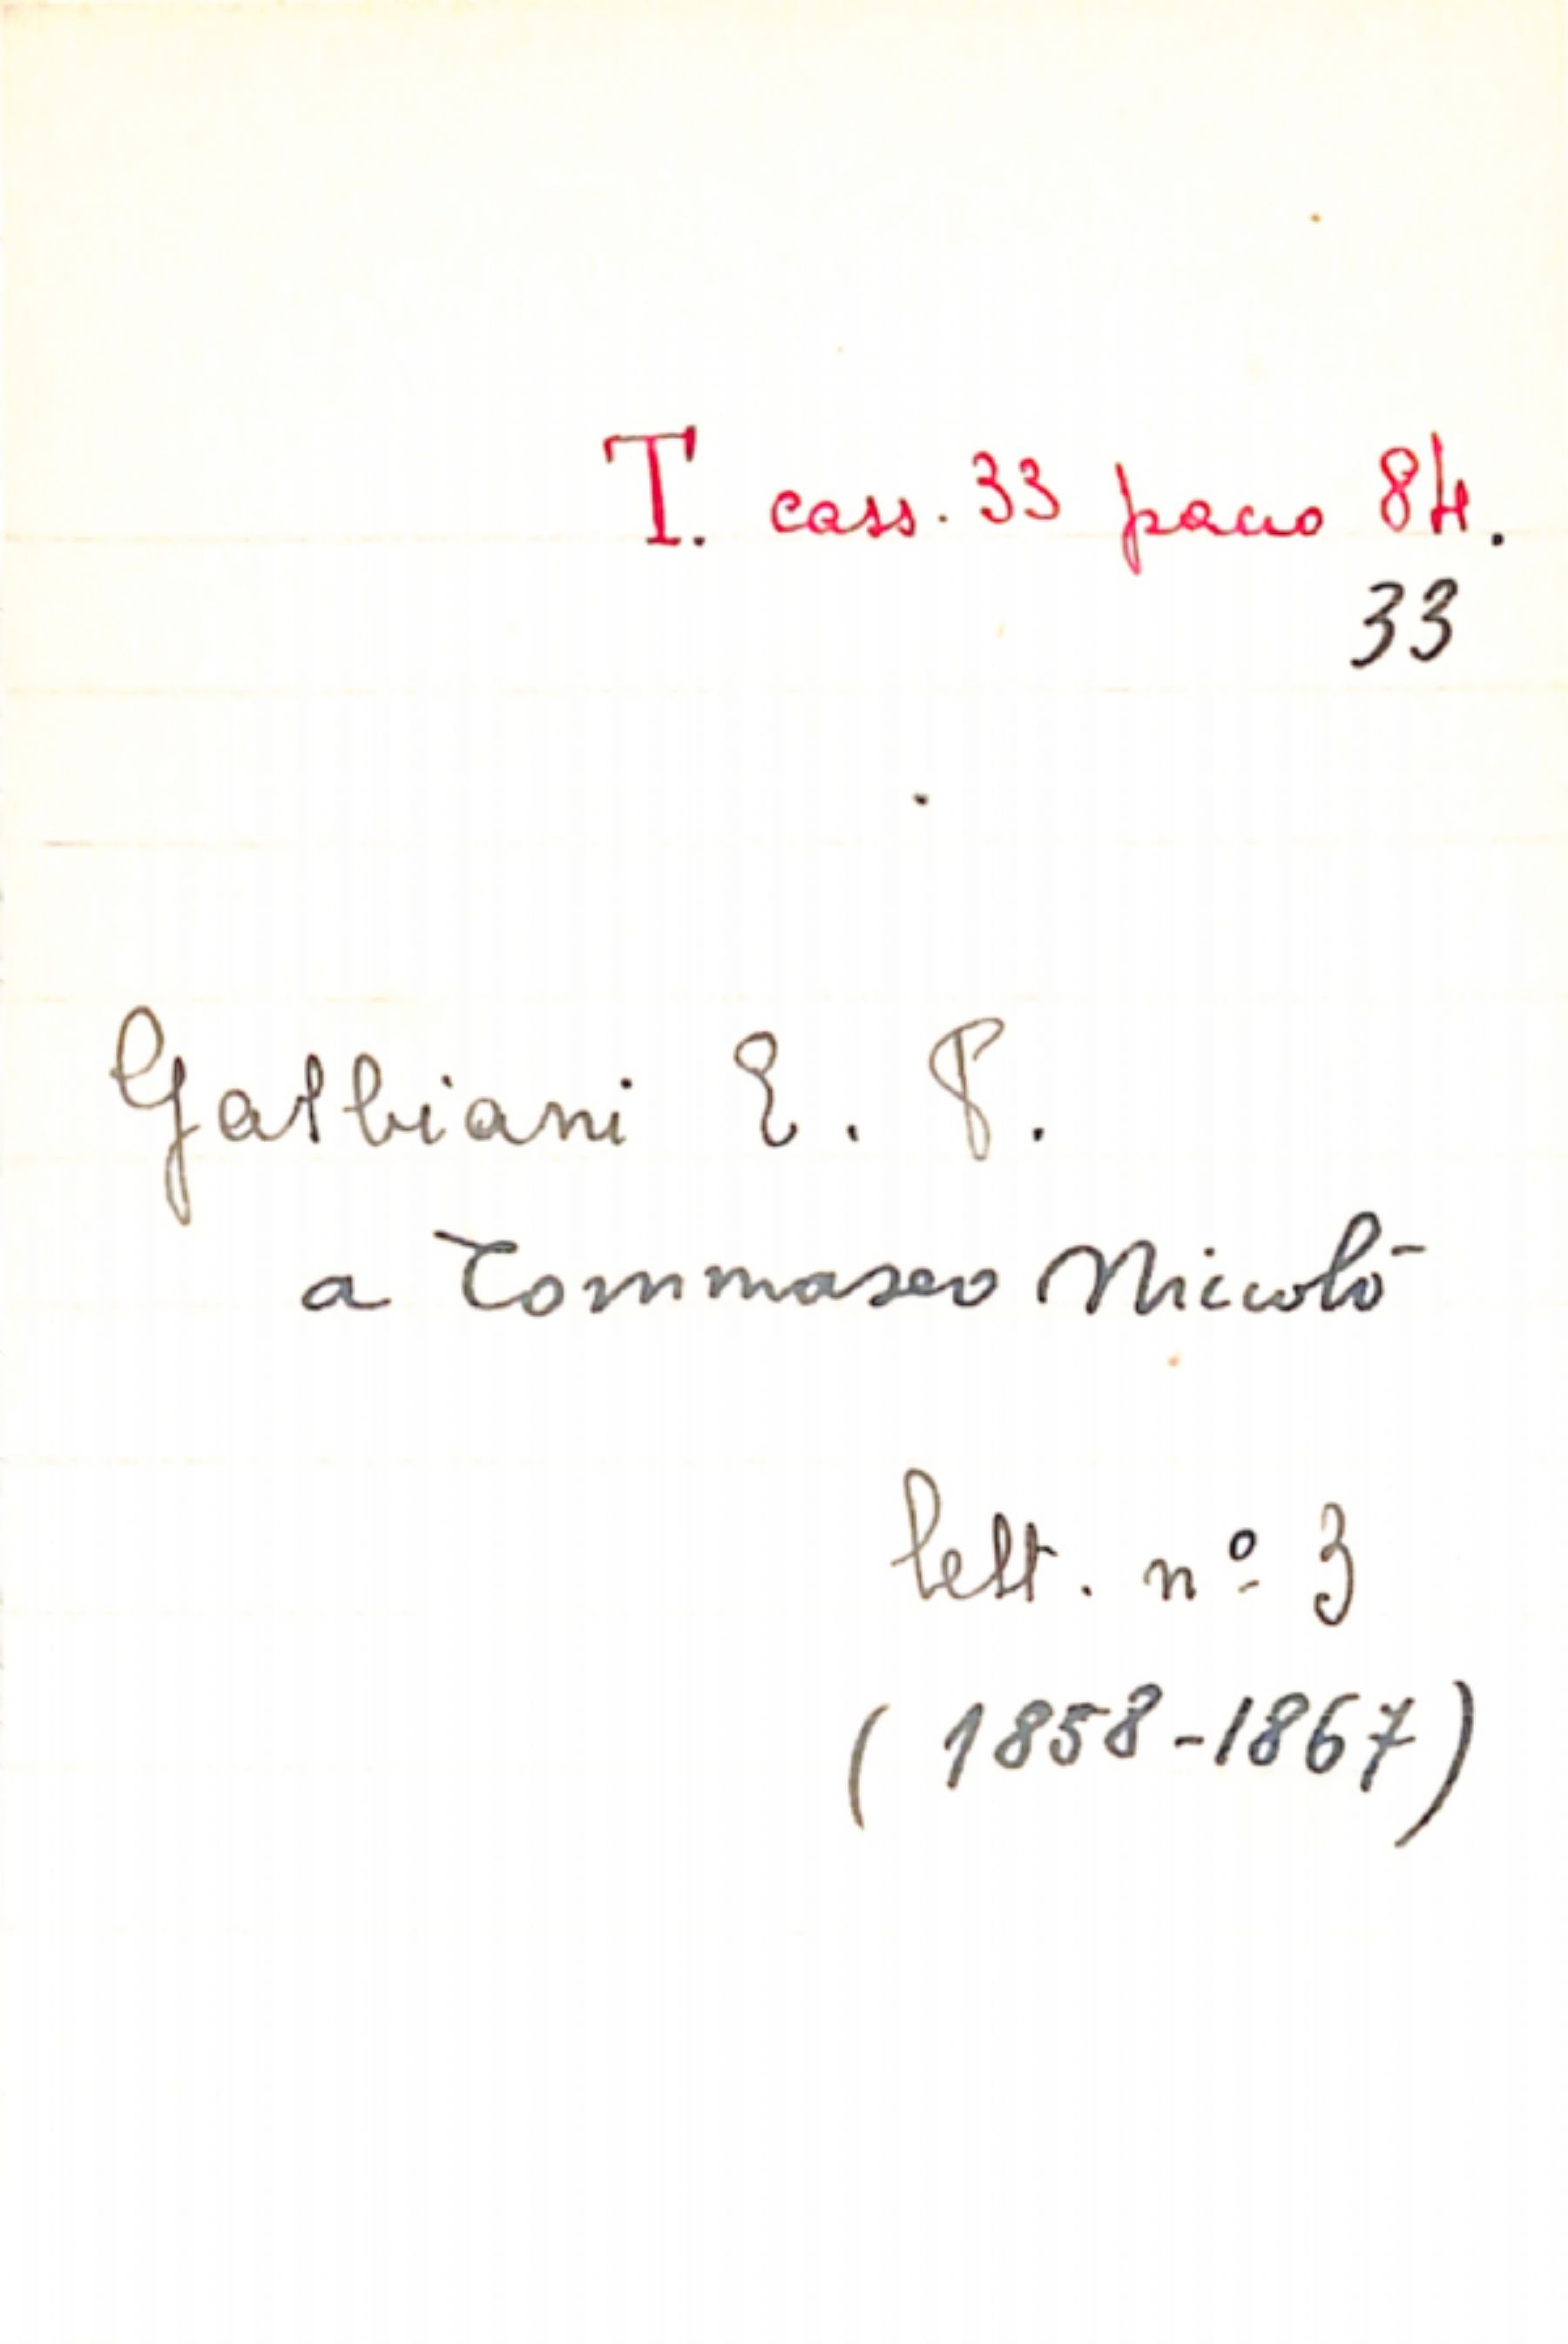 T. cass. 33 pacco 84.
33
Galbiani E. P.
a Tommaseo Niccolò
lett. nº 3
(1858-1867)